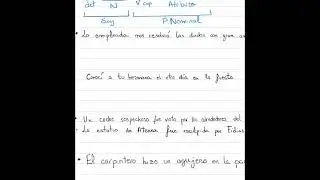 det N V cop Atributo
Suj P. Nominal
• La empleada nos resolvió las dudas con gran
Conocí a tu hermana el otro día en la fiesta.
• Un coche sospechoso fue visto por los alrededores del
• La estatua de Atenea fue esculpida por Fidias
• El carpintero hizo un agujero en la